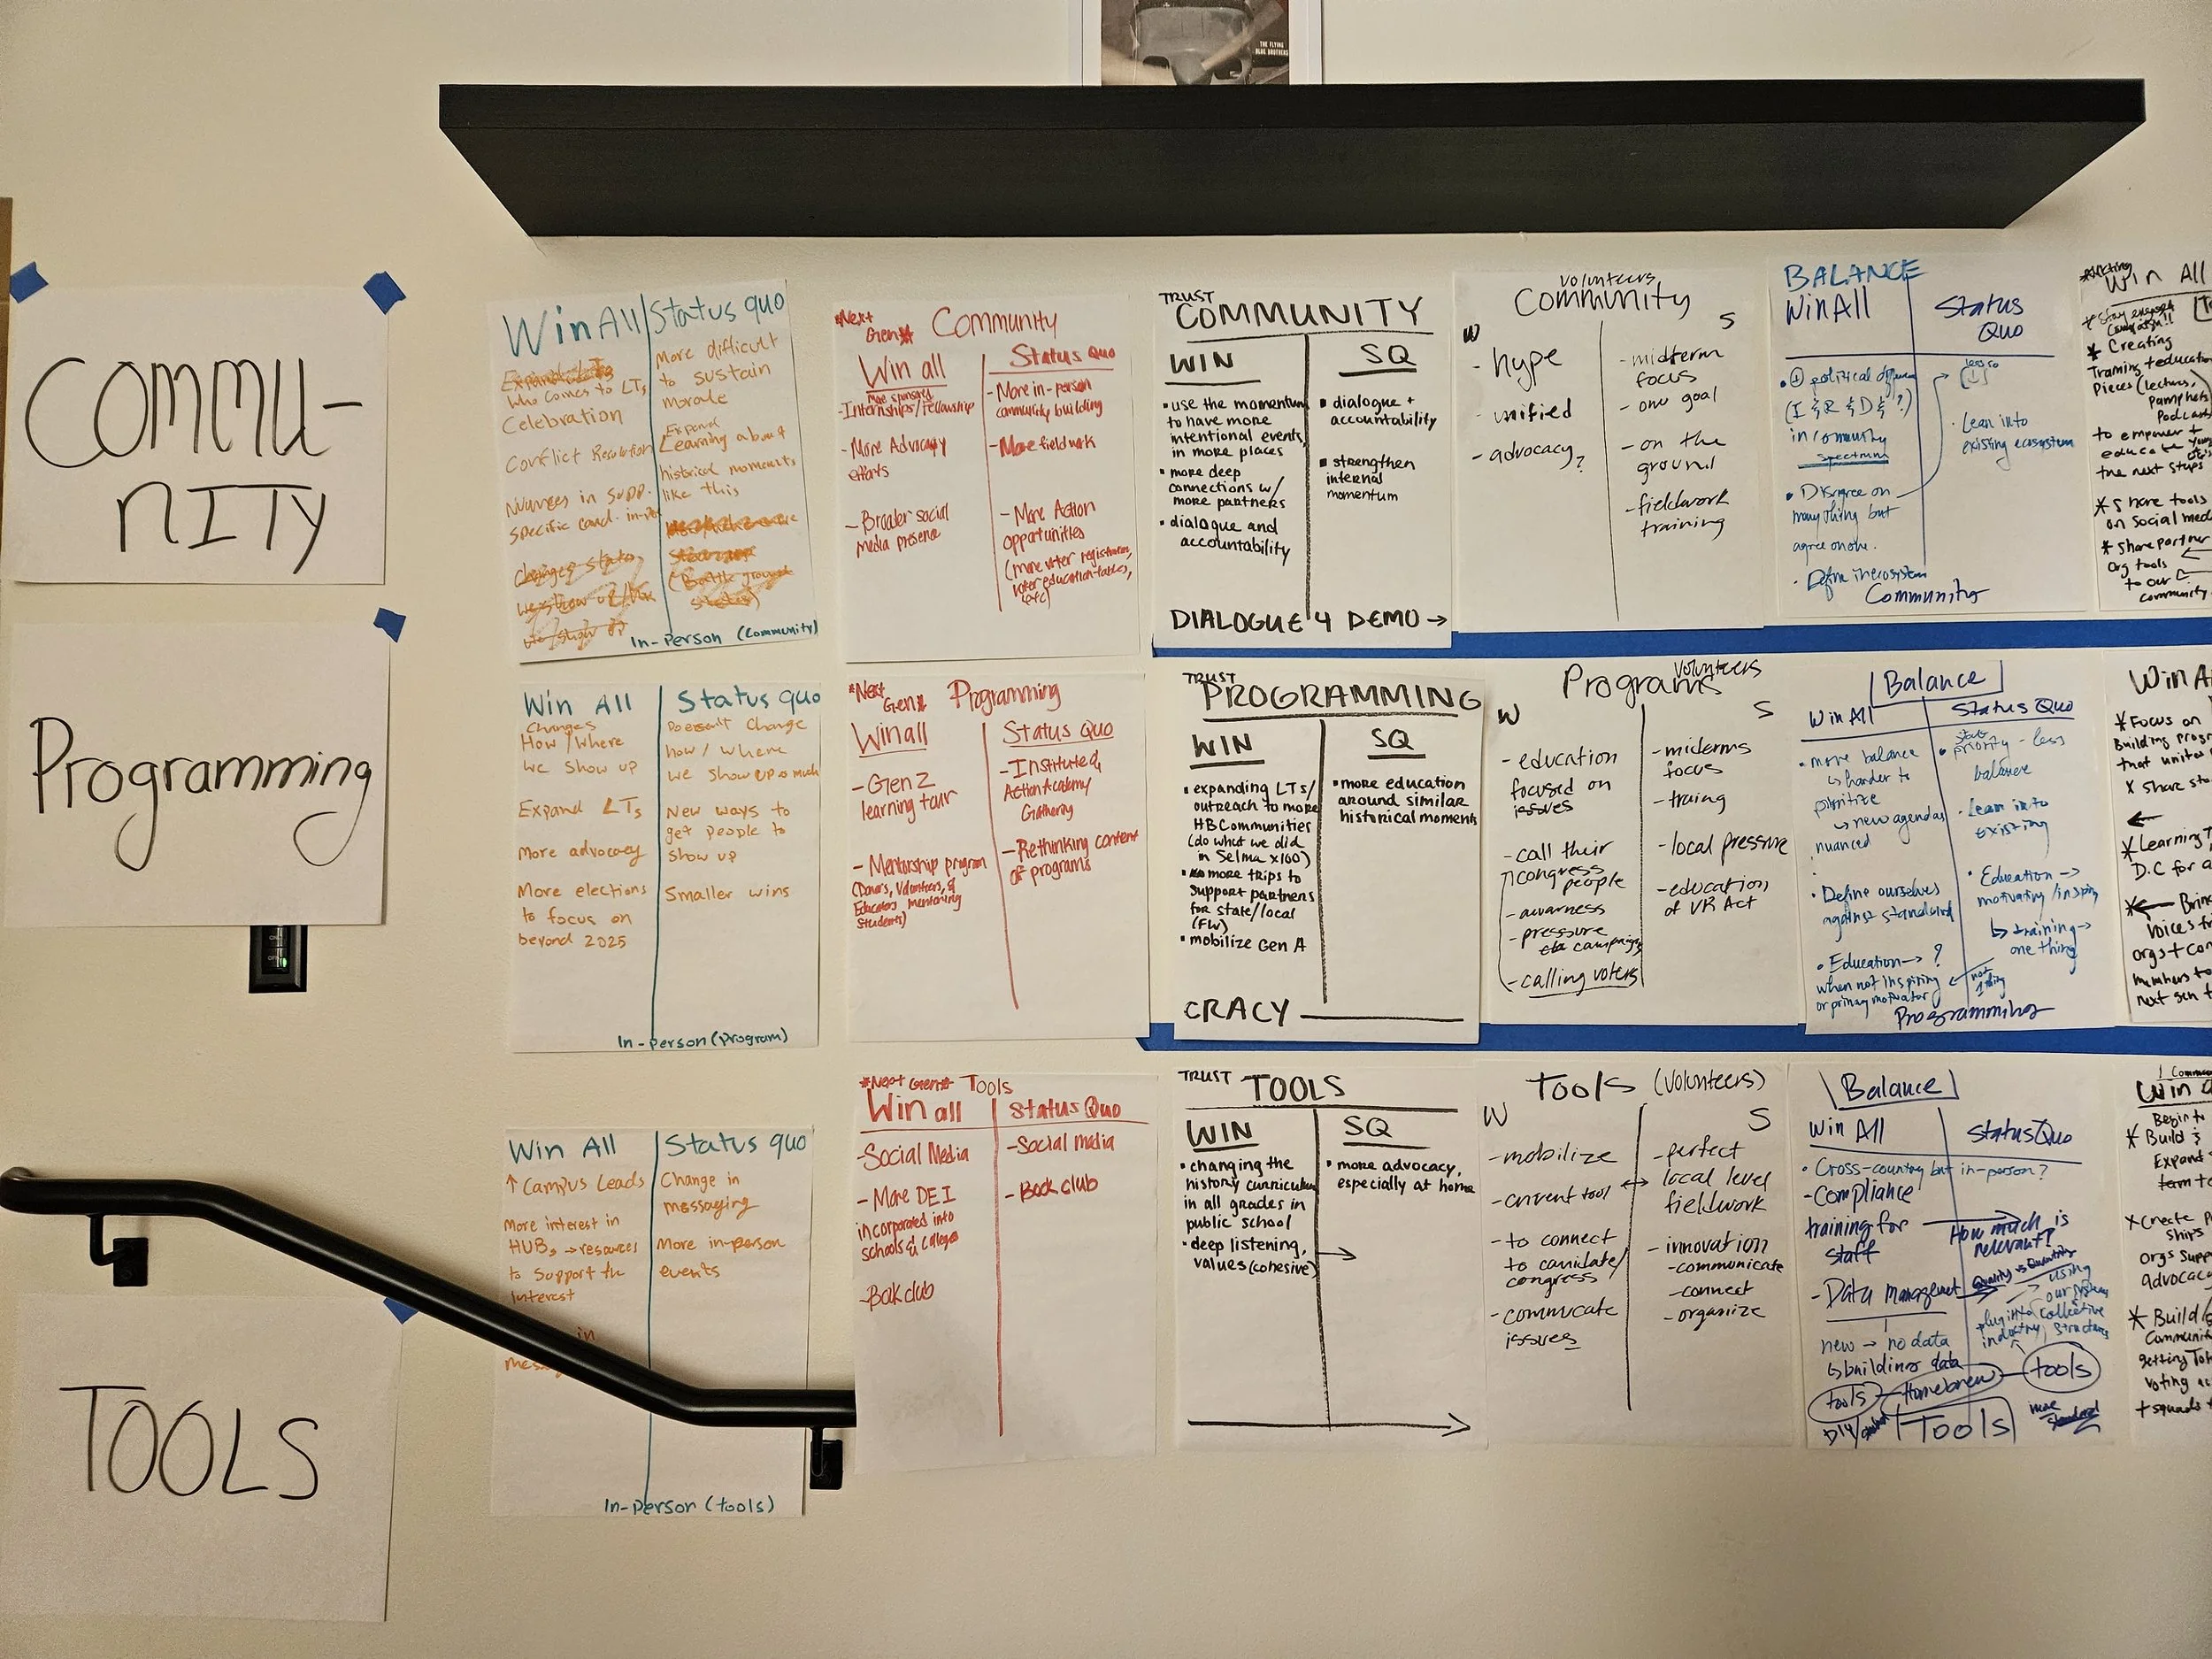 THE FLYING
BLUE BROTHERS
COMMU-
NITY
Win All
Status quo
Who comes to LTs
Celebration
Conflict Resolution
Nuances in supp.
specific cand. in-per
More difficult
to sustain
morale
Expand
Learning about
historical moments
like this
In-Person (Community)
*Next
Gen*
Community
Win all
More sponsored
-Internships/fellowship
-More Advocacy
efforts
-Broader social
media presence
Status Quo
-More in-person
community building
-More field work
-More Action
opportunities
(more voter registration,
voter education tables,
etc)
TRUST
COMMUNITY
WIN
• use the momentum
to have more
intentional events,
in more places
• more deep
connections w/
more partners
• dialogue and
accountability
SQ
• dialogue +
accountability
• strengthen
internal
momentum
DIALOGUE 4 DEMO →
Volunteers
Community
W
- hype
- unified
- advocacy?
S
- midterm
focus
- one goal
- on the
ground
- fieldwork
training
BALANCE
Win All
(I & R & D & ?)
in community
spectrum
• Disagree on
many thing but
agree on one.
Status
Quo
less so
• Lean into
existing ecosystem
Community
Win All
* Creating
Training + education
Pieces (lectures,
Pamphlets
Podcasts
to empower +
educate
the next steps
* Share tools
on Social med
* Share partner
Org tools
to our
community
Programming
Win All
Changes
How/Where
we show up
Expand LTs
More advocacy
More elections
to focus on
beyond 2025
Status quo
Doesn't change
how/where
we show up as much
New ways to
get people to
show up
Smaller wins
In-Person (Program)
*Next
Gen*
Programming
Win all
-Gen Z
learning tour
-Mentorship program
(Donors, Volunteers, &
Educators mentoring
students)
Status Quo
-Institute &
Action Academy
Gathering
-Rethinking content
of programs
TRUST
PROGRAMMING
WIN
• expanding LTs/
outreach to more
HBCommunities
(do what we did
in Selma x100)
• more trips to
support partners
for state/local
(FW)
• mobilize Gen A
SQ
• more education
around similar
historical moments
CRACY
Volunteers
Programs
W
- education
focused on
issues
- call their
congress
people
- awarness
- pressure
campaigns
- calling voters
S
- midterms
focus
- traing
- local pressure
- education
of VR Act
Balance
Win All
• more balance
↳ harder to
prioritize
↳ new agendas
nuanced
• Define ourselves
against standard
• Education → ?
when not inspiring
or primary motivator
Status Quo
state
• priority - less
balance
• Lean into
existing
• Education →
motivating/inspiring
↳ training →
one thing
not
1 thing
Programming
Win A
* Focus on
Building progr
that unites
* Share sto
* Learning T
D.C for a
* ← Bring
voices
orgs + com
members to
next gen
TOOLS
Win All
↑ Campus Leads
More interest in
HUBs → resources
to support the
interest
in
Status quo
Change in
messaging
More in-person
events
In-Person (tools)
*Next Gen*
Tools
Win all
-Social Media
-More DEI
incorporated into
schools & colleges
-Book club
Status Quo
-Social media
-Book club
TRUST
TOOLS
WIN
• changing the
history curriculum
in all grades in
public school
• deep listening,
values (cohesive)
SQ
• more advocacy,
especially at home
Tools (Volunteers)
W
- mobilize
- current tool
- to connect
to canidate/
congress
- commucate
issues
S
- perfect
local level
fieldwork
- innovation
- communicate
- connect
- organize
Balance
Win All
Status Quo
• Cross-country but in-person?
- Compliance
training for
staff
How much is
relevant?
- Data management
Quality vs Quantity
using
our systems
plug into
collective
industry
structures
new → no data
↳ building data
tools
Homebrew
tools
DIY
Tools
more
Win a
Begin to
* Build
Expand
* Create
ships
orgs supp
advocac
* Build
Communi
getting
voting
+ squads